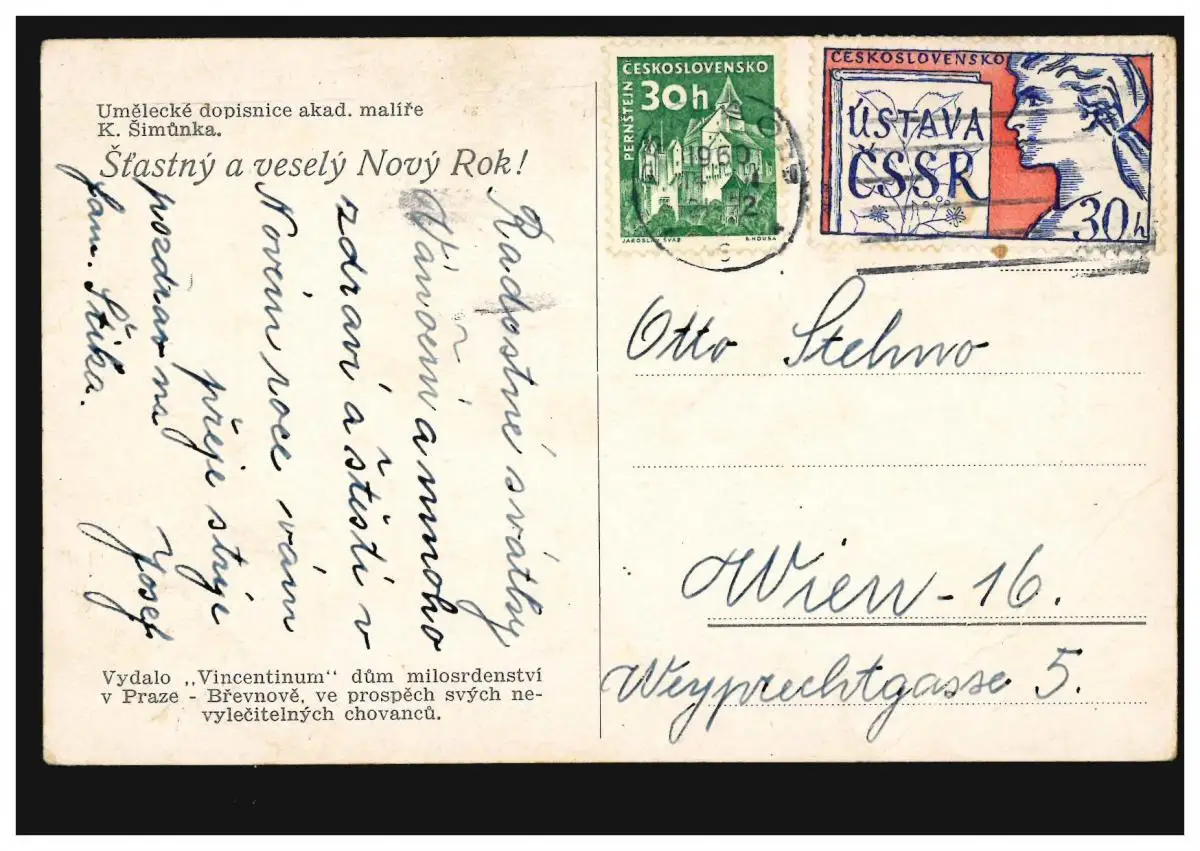 Umělecké dopisnice akad. malíře
K. Šimůnka.
Šťastný a veselý Nový Rok!
Radostné svátky
Vánoční a mnoho
zdraví a štěstí v
Novém roce vám
přeje strýc
Josef
pozdrav na
fam. Štika.
Vydalo „Vincentinum“ dům milosrdenství
v Praze - Břevnově, ve prospěch svých ne-
vyléčitelných chovanců.
ČESKOSLOVENSKO
30h
PERNŠTEJN
JAROSLAV ŠVÁB
B. HOUSA
1960
ČESKOSLOVENSKO
ÚSTAVA
ČSSR
30h
Otto Stehno
Wien - 16.
Weyprechtgasse 5.